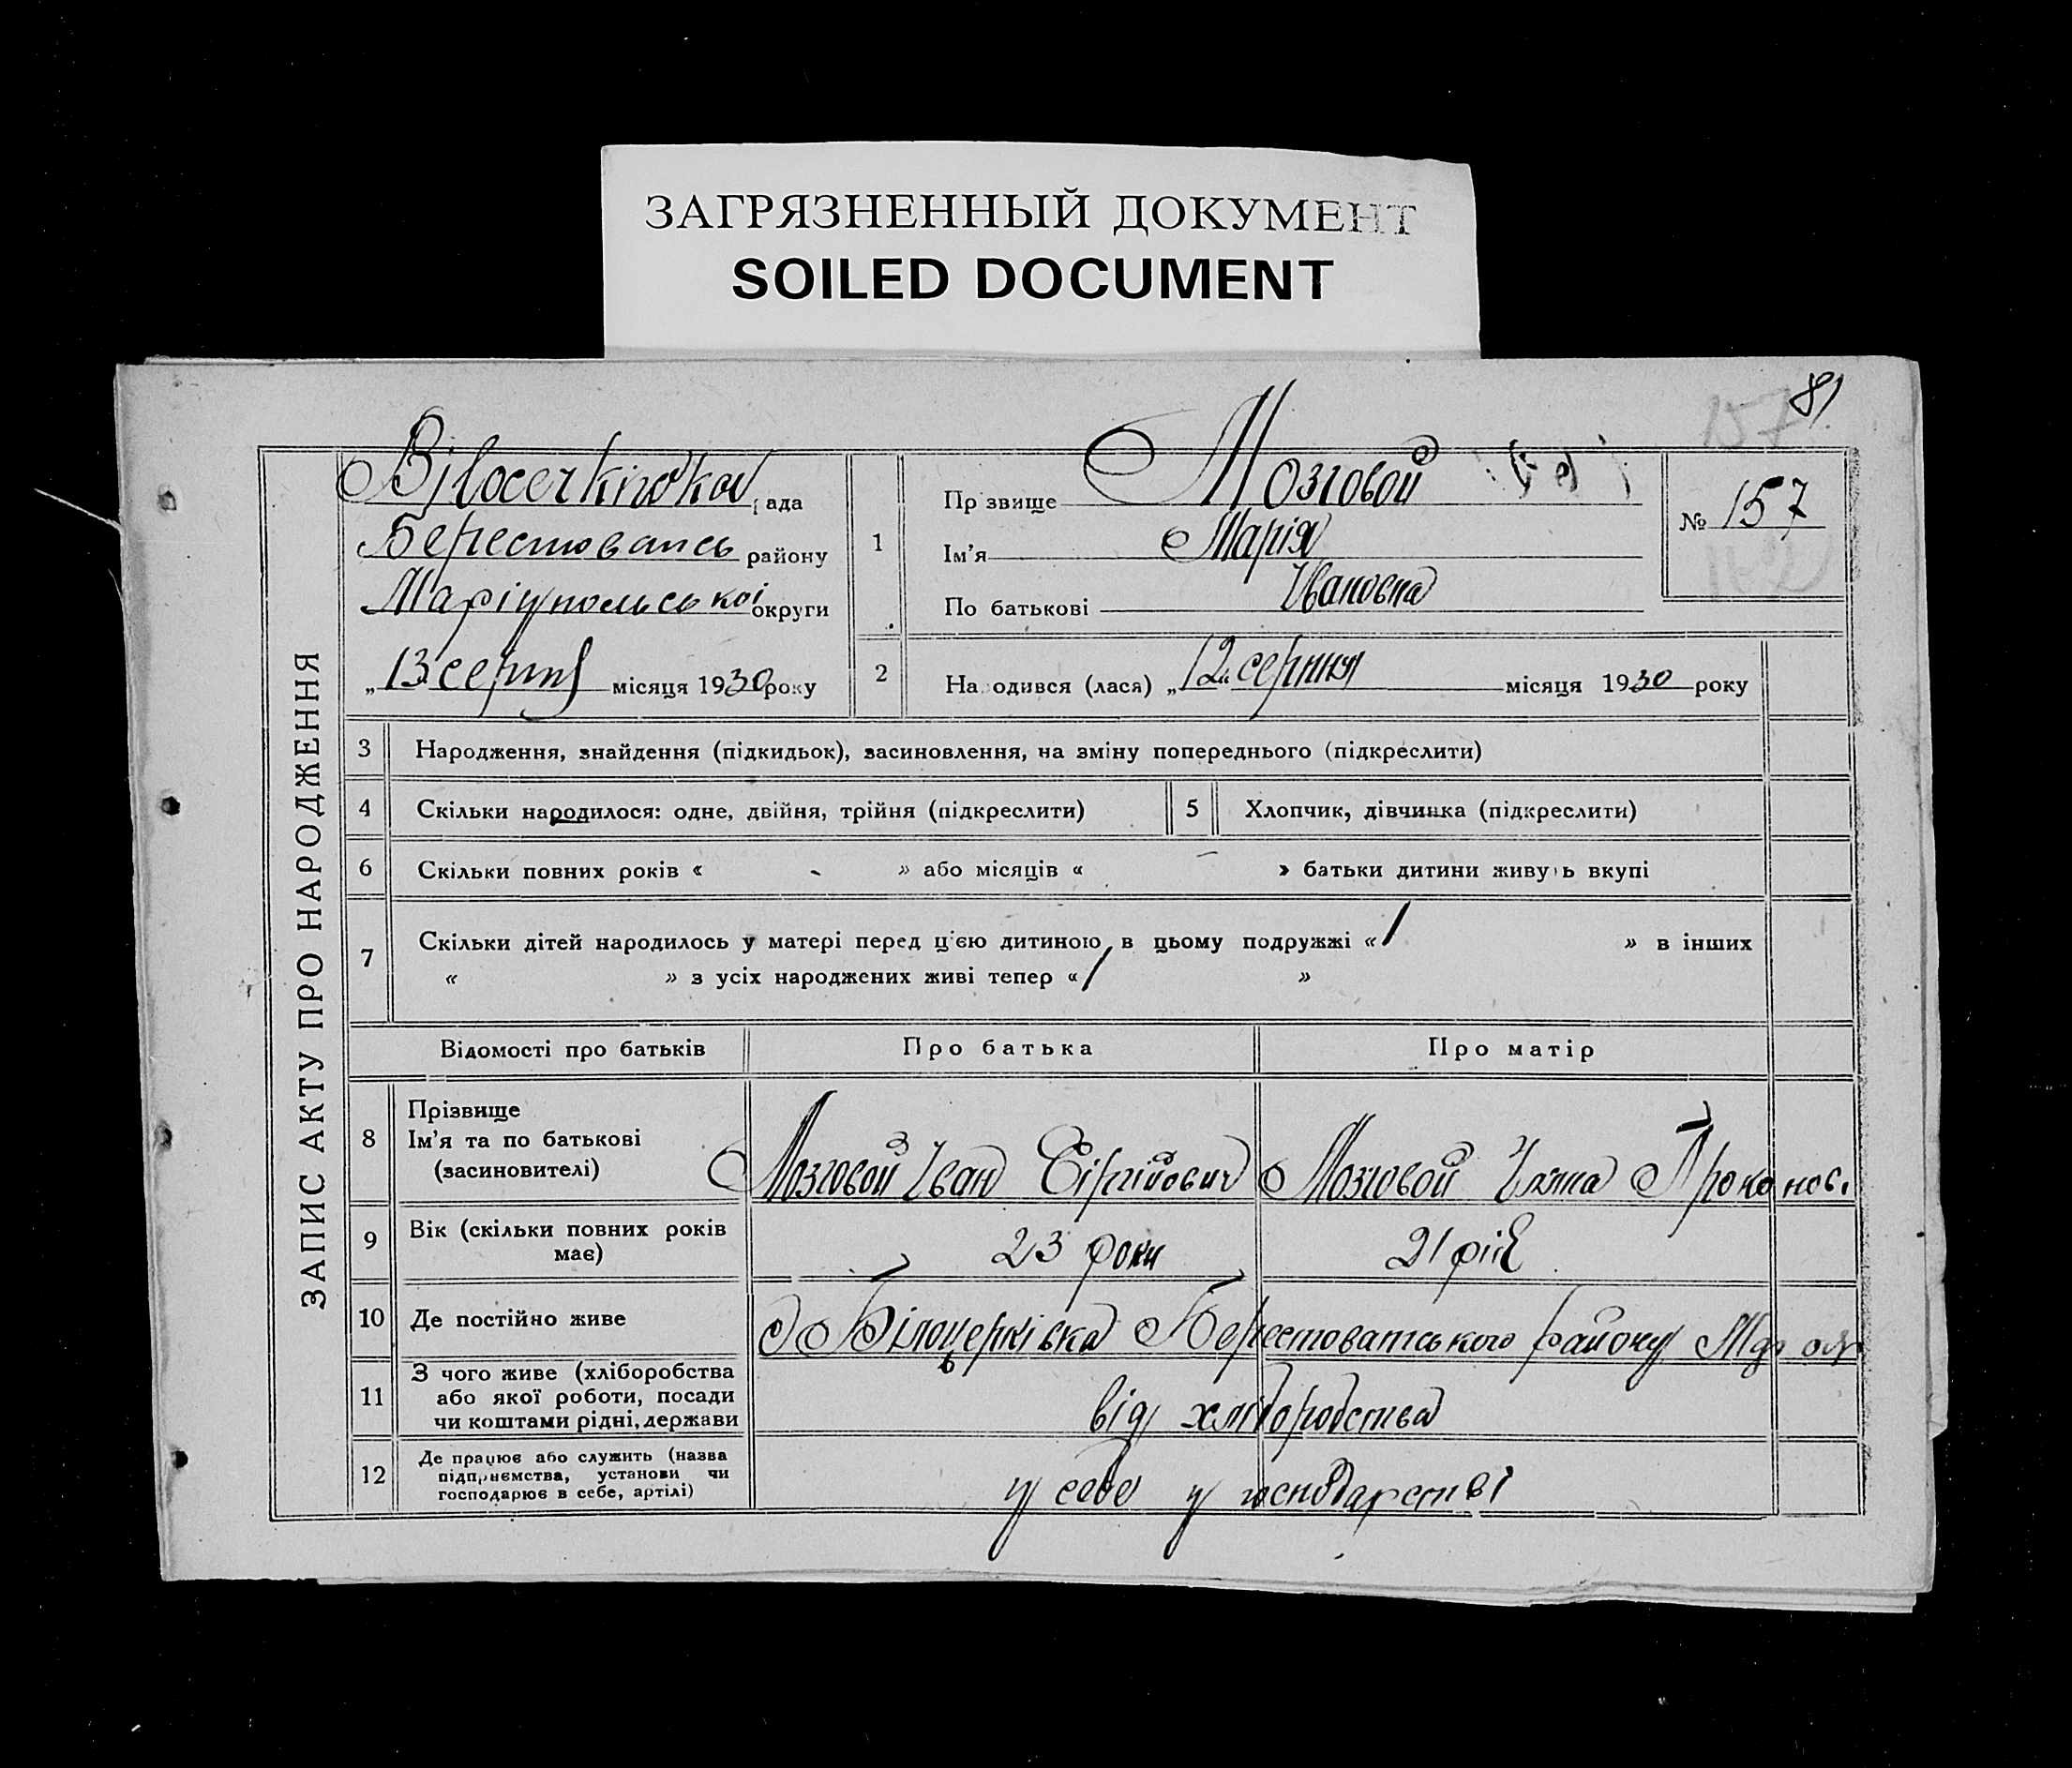 ЗАГРЯЗНЕННЫЙ ДОКУМЕНТ
SOILED DOCUMENT
81
157
ЗАПИС АКТУ ПРО НАРОДЖЕННЯ
Bjlocerkiwka рада
Берестовансь району
Маріупольської округи
„13 серпня місяця 1930 року
1
Прізвище Мозговой
Ім'я Марія
По батькові Івановна
№ 157
2
Народився (лася) „12„ серпня місяця 1930 року
3 Народження, знайдення (підкидьок), засиновлення, на зміну попереднього (підкреслити)
4 Скільки народилося: одне, двійня, трійня (підкреслити) 5 Хлопчик, дівчинка (підкреслити)
6 Скільки повних років « - » або місяців « — » батьки дитини живуть вкупі
7 Скільки дітей народилось у матері перед цією дитиною, в цьому подружжі « 1 » в інших
« » з усіх народжених живі тепер « 1 »
Відомості про батьків Про батька Про матір
8 Прізвище
Ім'я та по батькові
(засиновителі)
Мозговой Іван Сіргійович Мозговой
9 Вік (скільки повних років
має)
23 роки 21 рік
10 Де постійно живе
с Білоцерківка Берестоватського району Мар окр
11 З чого живе (хліборобства
або якої роботи, посади
чи коштами рідні, держави
від хліборобства
12 Де працює або служить (назва
підприємства, установи чи
господарює в себе, артілі)
у себе у господарстві